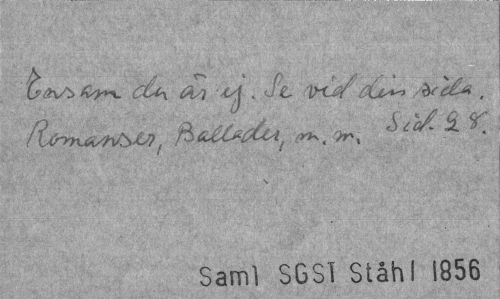 Ensam du är ej. Se vid din sida.
Romanser, Ballader, m. m. Sid. 28.
Saml SGSI Ståhl 1856